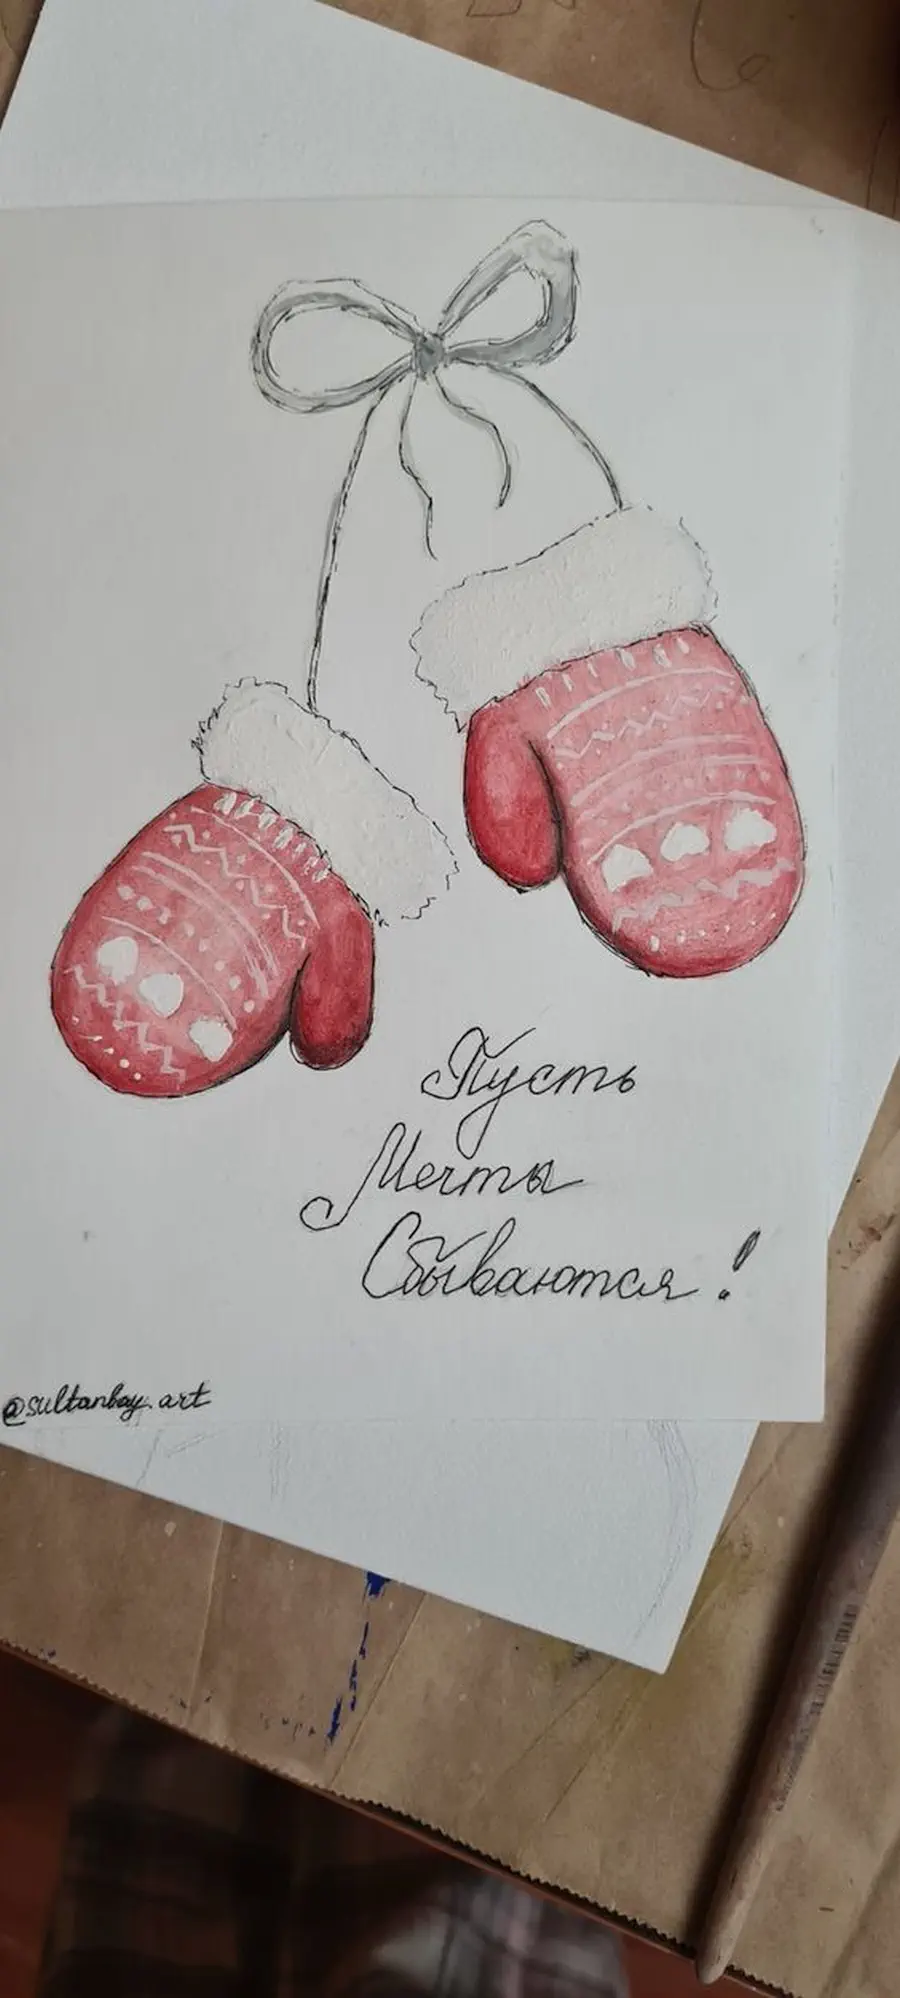 Пусть
Мечты
Сбываются!
@sultanbay.art